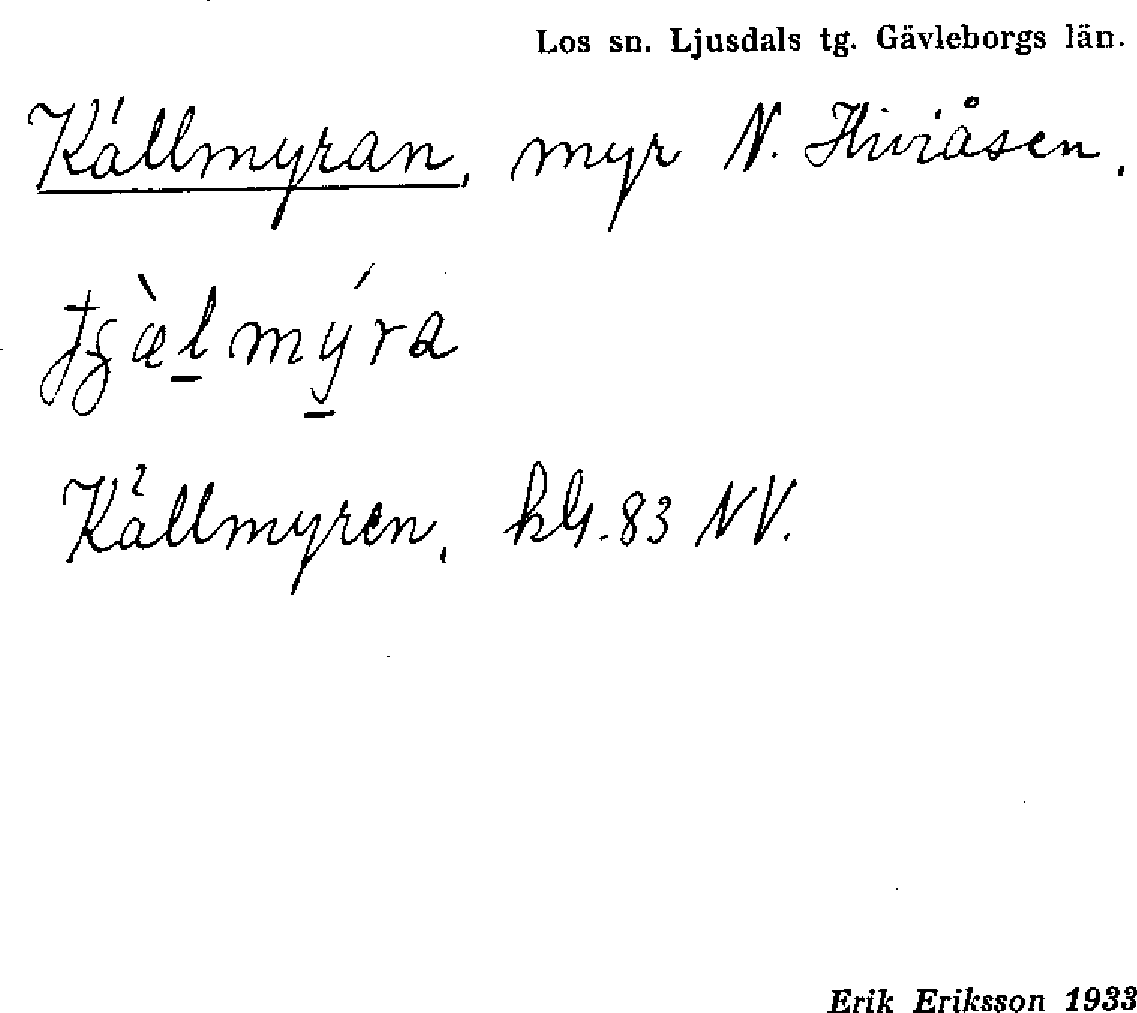 Los sn. Ljusdals tg. Gävleborgs län.
Källmyran, myr N. Hiviåsen.
Källmyren, 83 NV.
Erik Eriksson 1933